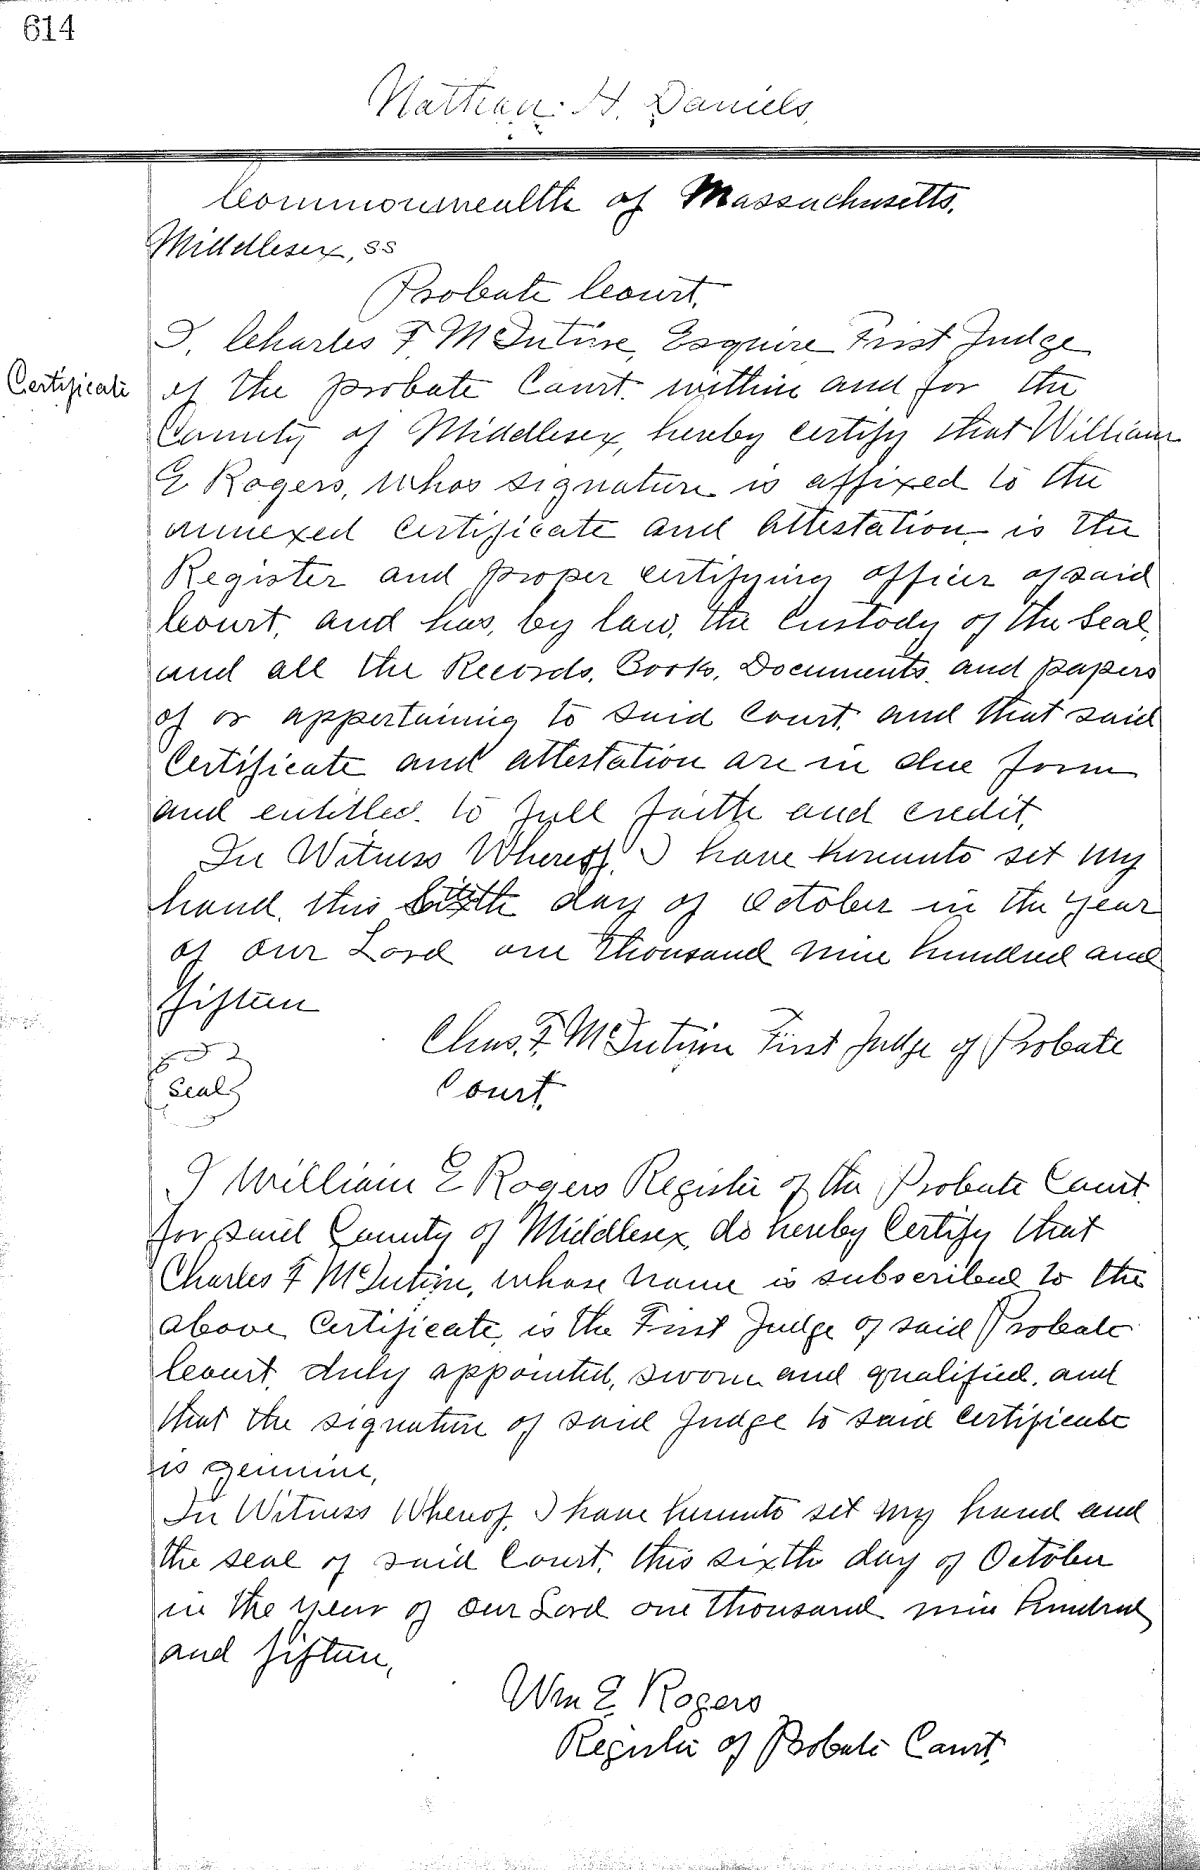 614
Nathan. H. Daniels.
Commonwealth of Massachusetts.
Middlesex, ss
Probate Court.
I, Charles F. McIntire, Esquire First Judge
Certificate
of the probate Court. within and for the
County of Middlesex, hereby certify that William
E Rogers, whos signature is affixed to the
annexed certificate and attestation is the
Register and proper certifying officer of said
Court, and has, by law, the custody of the seal,
and all the Records, Books, Documents, and papers
of or appertaining to said Court, and that said
Certificate and attestation are in due form
and entitled. to full faith and credit.
In Witness Whereof, I have hereunto set my
hand, this sixth day of October in the year
of our Lord one thousand nine hundred and
fifteen
Chas. F. McIntire First Judge of Probate
Seal
Court.
I William E Rogers Register of the Probate Court
for said County of Middlesex, do hereby Certify that
Charles F McIntire, whose name is subscribed to the
above Certificate, is the First Judge of said Probate
Court, duly appointed, sworn and qualified, and
that the signature of said Judge to said certificate
is genuine,
In Witness Whereof, I have hereunto set my hand and
the seal of said Court, this sixth day of October
in the year of our Lord one thousand nine hundred
and fifteen,
Wm E Rogers
Register of Probate Court.